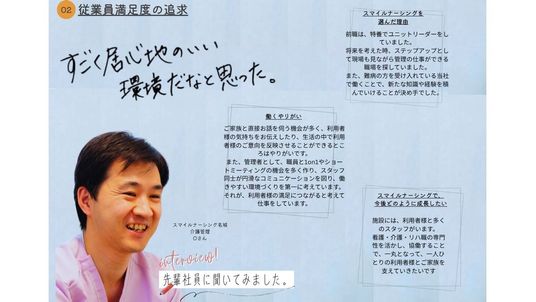 02 従業員満足度の追求
すごく居心地のいい
環境だなと思った。
スマイルナーシングを
選んだ理由
前職は、特養でユニットリーダーをし
ていました。
将来を考えた時、ステップアップとし
て現場も見ながら管理の仕事ができる
職場を探していました。
また、難病の方を受け入れている当社
で働くことで、新たな知識や経験を積
んでいけることが決め手でした。
働くやりがい
ご家族と直接お話を伺う機会が多く、利用者
様の気持ちをお伝えしたり、生活の中で利用
者様のご意向を反映させることができるとこ
ろはやりがいです。
また、管理者として、職員と1on1やショー
トミーティングの機会を多く作り、スタッフ
同士が円滑なコミュニケーションを図り、働
きやすい環境づくりを第一に考えています。
それが、利用者様の満足につながると考えて
仕事をしています。
スマイルナーシングで、
今後どのように成長したい
施設には、利用者様と多く
のスタッフがいます。
看護・介護・リハ職の専門
性を活かし、協働すること
で、一丸となって、一人ひ
とりの利用者様とご家族を
支えていきたいです
スマイルナーシング名城
介護管理
Oさん
interview!
先輩社員に聞いてみました。